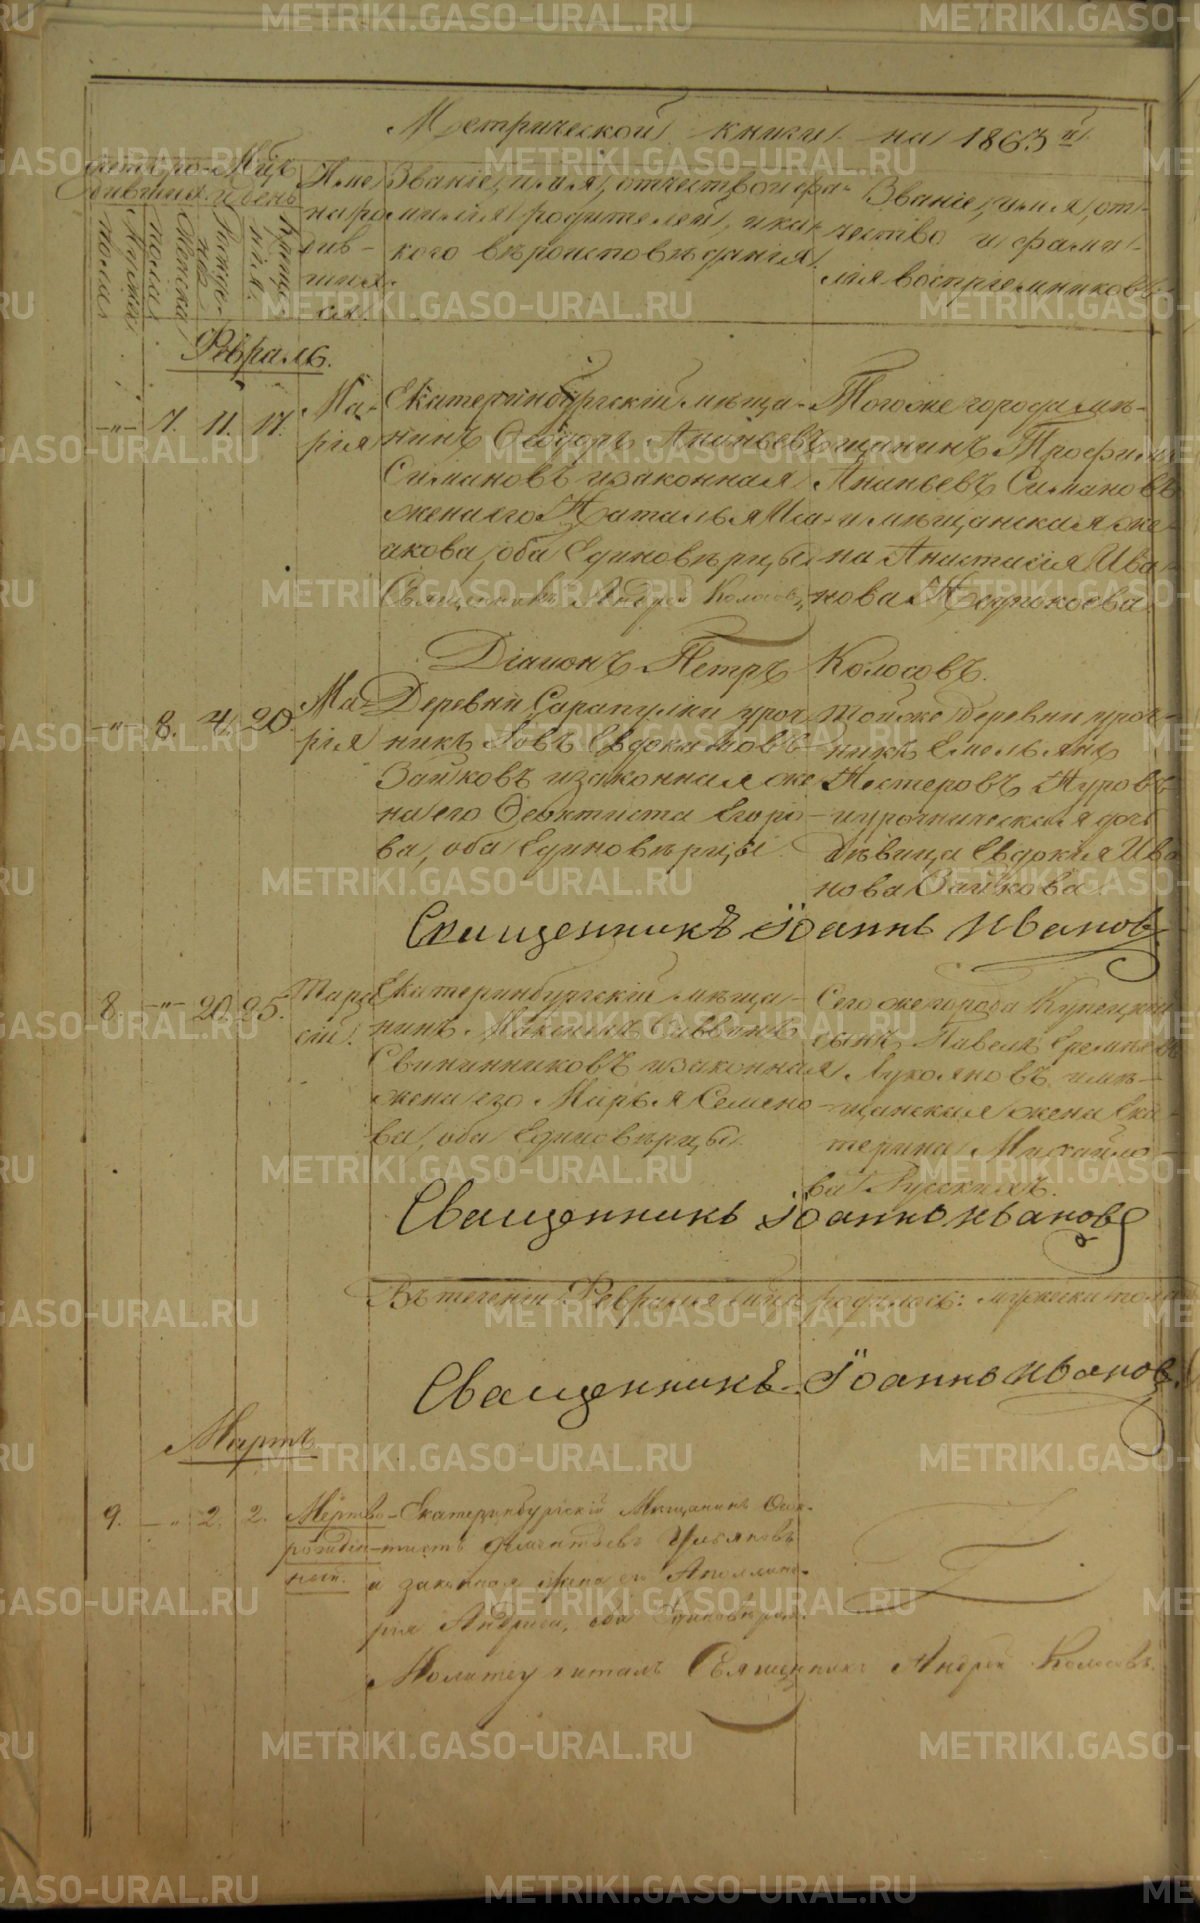 Метрической книги на 1863 й
Счетъ ро-
дившихся.
Мѣс.
и день
Мужска
пола
Женска
пола
Рожде-
нія
Креще-
нія.
Име
на ро
див-
ших-
ся.
Званіе, имя, отчество и фа-
милія родителей, и ка-
кого вѣроисповѣданія.
Званіе, имя, от-
чество и фами-
лія воспріемниковъ
Февраль.
-"- 7. 11. 17.
Ма-
рія
Екатеринбургскій мѣща-
нинъ Ѳеодоръ Ананьевъ
Симановъ и законная
жена его Наталья Иса-
акова, оба Единовѣрцы
Священникъ Андрей Колосовъ
Того же города мѣ-
щанинъ Трофимъ
Ананьевъ Симановъ
и мѣщанская же-
на Анастасія Ива-
нова
Діаконъ Петръ Колосовъ.
-"- 8. 4. 20.
Ма-
рія
Деревни Сарапулки уроч-
никъ Іовъ Евдокимовъ
Зайковъ и законная же
на его Ѳеоктиста Егоро-
ва, оба Единовѣрцы
Той же деревни уроч-
никъ Емельянъ
Нестеровъ Пуровъ
и урочническая дочь
дѣвица Евдокія Ива
нова Зайкова.
Священникъ Іоаннъ Ивановъ
8. -"- 20. 25.
Тара
сій.
Екатеринбургскій мѣща-
нинъ Саввинъ
Свининниковъ и законная
жена его Марья Семено-
ва, оба Единовѣрцы.
Сего же города Купецкій
сынъ Павелъ Еремѣевъ
Лукояновъ и мѣ-
щанская жена Ека
терина Михайло-
ва Русскихъ.
Священникъ Іоаннъ Ивановъ
Въ теченіи Февраля родилось: мужска пола
Священникъ Іоаннъ Ивановъ.
Мартъ
9. -"- 2. 2.
Мертво-
рожден-
ный.
Екатеринбургскій Мѣщанинъ Ѳеок-
тистъ Ульяновъ
и законная жена его Аполлина-
рія Андреева, оба Единовѣрцы.
Молитву читалъ Священникъ Андрей Колосовъ.
METRIKI.GASO-URAL.RU